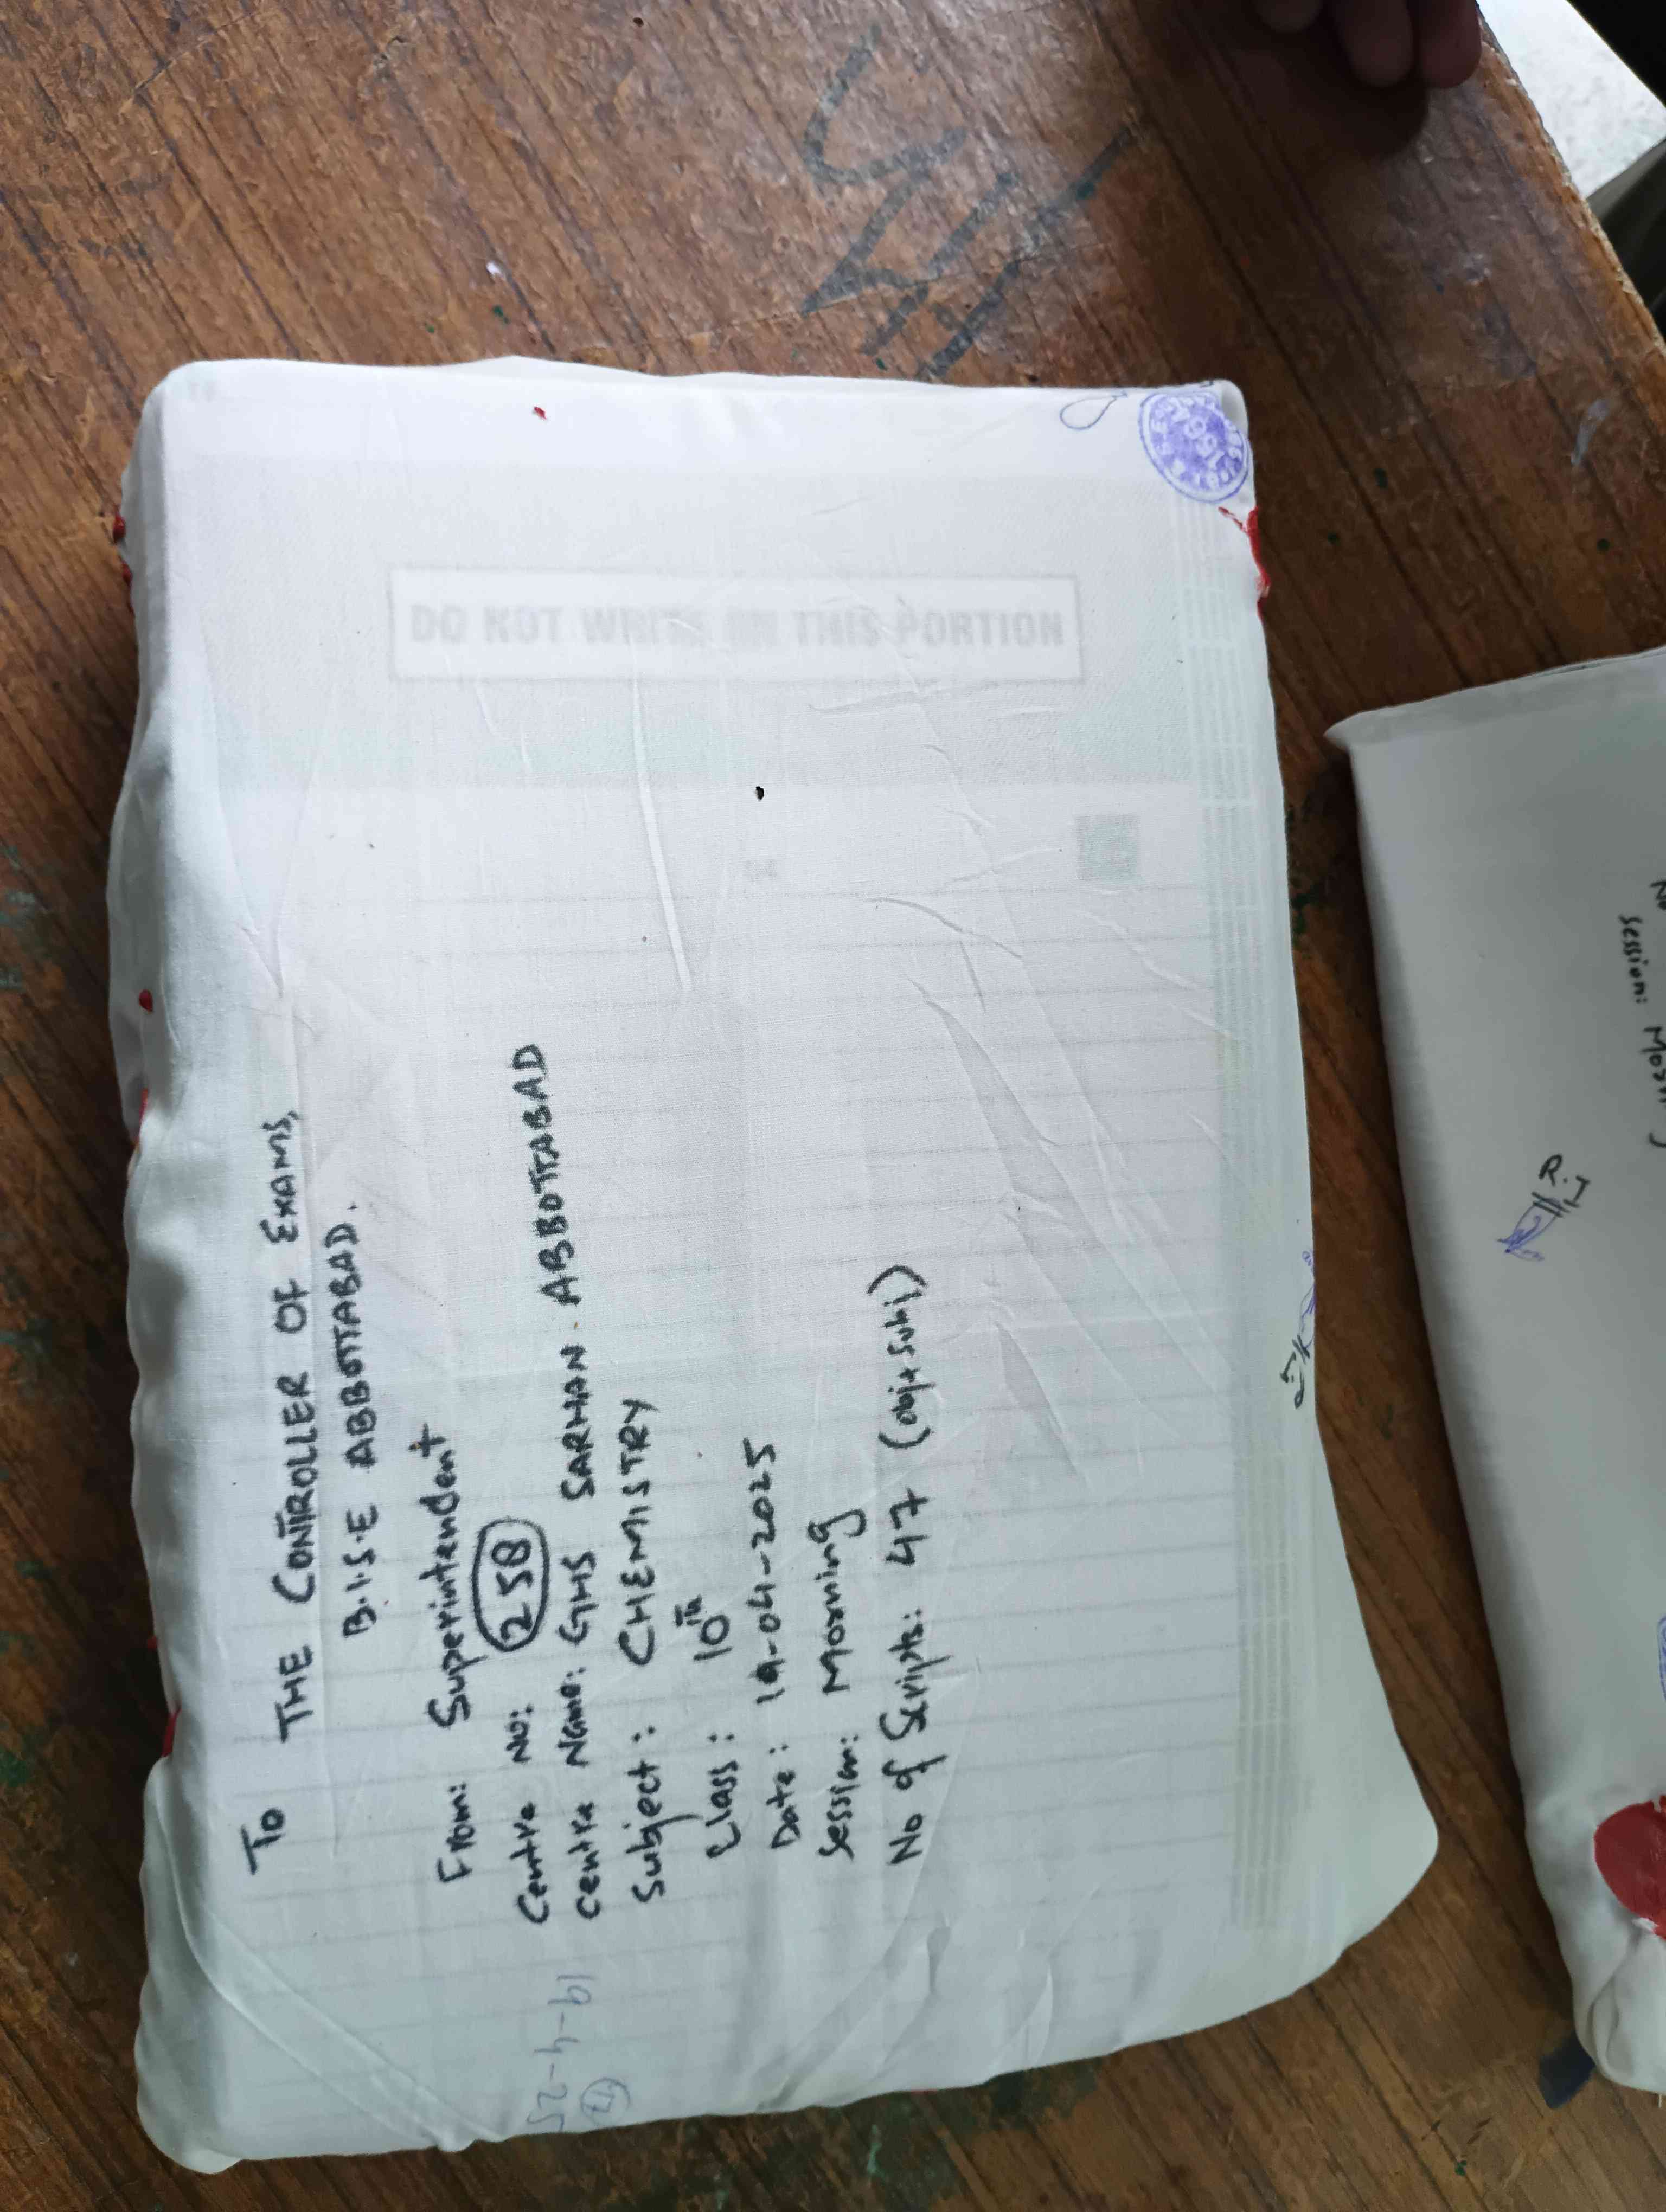 To
THE CONTROLLER OF EXAMS,
B.I.S.E ABBOTTABAD.
From: Superintendent
Centre NO: 258
Centre Name: GHS SARHAN. ABBOTTABAD
Subject: CHEMISTRY
Class: 10th
Date: 19-04-2025
Session: Morning
No of Scripts: 47 (obj+subj)
19-4-25
DO NOT WRITE ON THIS PORTION
No
Session: Morning
R.I